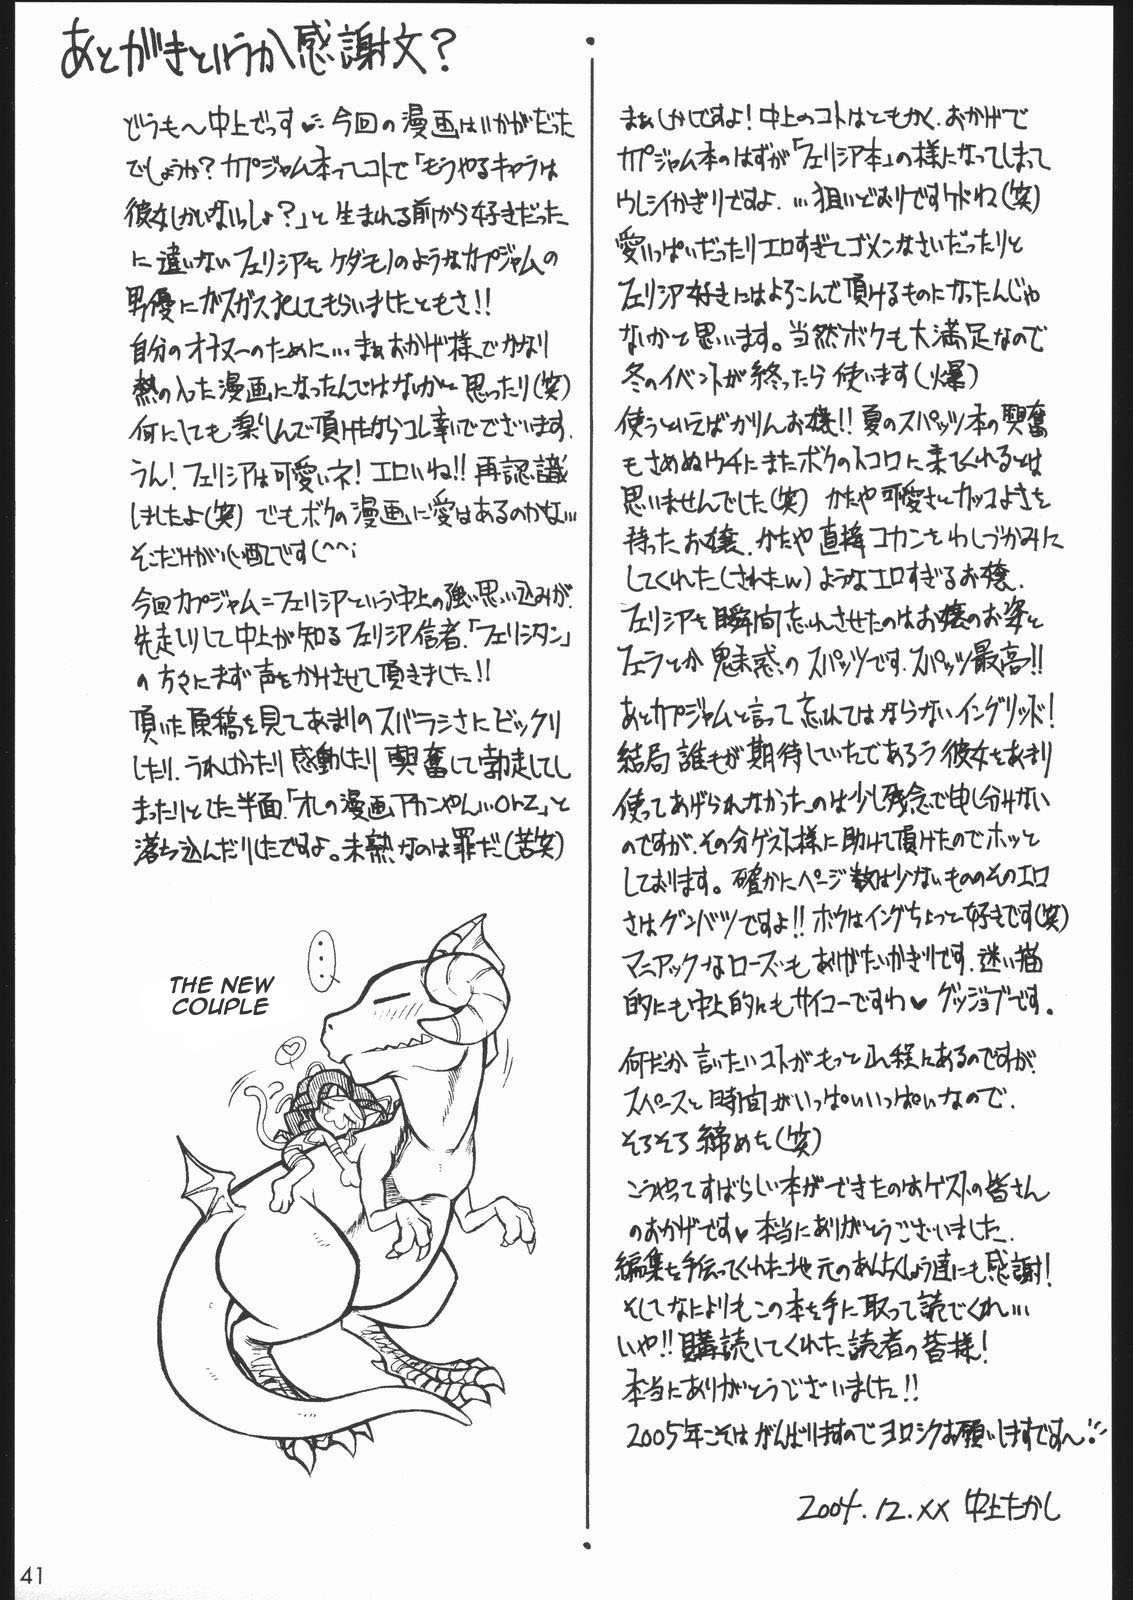 あとがきというか感謝文?
どうも〜中上でっす♥ 今回の漫画はいかがだった
でしょうか?カプジャム本ってコトで「もうやるキャラは
彼女しかいないっしょ?」と生まれる前から好きだった
に違いないフェリシアをケダモノのようなカプジャムの
男優にガスガス犯してもらいましたともさ!!
自分のオナヌーのために…まぁおかげ様でかなり
熱の入った漫画になったんではないかと思ったり(笑)
何にしても楽しんで頂けたならコレ幸いでございます.
うん!フェリシアは可愛いネ!エロいね!!再認識
しましたよ(笑) でもボクの漫画に愛はあるのかな…
そこだけが心配です(^^;
今回カプジャム=フェリシアという中上の強い思い込みが.
先走りして中上が知るフェリシア信者.「フェリシタン」
の方々にまず声をかけさせて頂きました!!
頂いた原稿を見てあまりのスバラシさにビックリ
したり.うれしかったり感動したり興奮して勃走してし
まったりとした半面.「オレの漫画アカンやん…orz」と
落ち込んだりしたですよ。未熟なのは罪だ(苦笑)
THE NEW
COUPLE
41
まぁしかしですよ!中上のコトはともかく.おかげで
カプジャム本のはずが「フェリシア本」の様になってしまって
ウレシイかぎりですよ. …狙いどおりですケドね(笑)
愛いっぱいだったりエロすぎてゴメンなさいだったりと
フェリシア好きにはよろこんで頂けるものになったんじゃ
ないかと思います。当然ボクも大満足なので
冬のイベントが終ったら使います(爆)
使うといえばかりんお嬢!!夏のスパッツ本の興奮
もさめぬウチにまたボクのトコロに来てくれるとは
思いませんでした(笑) かたや可愛さとカッコよさを
持ったお嬢.かたや直接コカンをわしづかみに
してくれた(されたw)ようなエロすぎるお嬢.
フェリシアを瞬間忘れさせたのはお嬢のお姿と
フェラとか魅惑のスパッツです.スパッツ最高!!
あとカプジャムと言って忘れてはならないイングリッド!
結局誰もが期待していたであろう彼女をあまり
使ってあげられなかったのは少し残念で申し分けない
のですが.その分ゲスト様に助けて頂けたのでホッと
しております。確かにページ数は少ないもののそのエロ
さはグンバツですよ!!ボクはイングちょっと好きです(笑)
マニアックなローズもありがたいかぎりです.迷い猫
的にも中上的にもサイコーですわ♥ グッジョブです。
何だか言いたいコトがもっと山程にあるのですが.
スペースと時間がいっぱいいっぱいなので.
そろそろ締めを(笑)
こうやってすばらしい本ができたのはゲストの皆さん
のおかげです♥ 本当にありがとうございました.
編集を手伝ってくれた地元のあんちくしょう達にも感謝!
そしてなによりもこの本を手に取って読でくれ…
いや!!購読してくれた読者の皆様!
本当にありがとうございました!!
2005年こそはがんばりますのでヨロシクお願いしますです〜
2004.12.XX 中上たかし